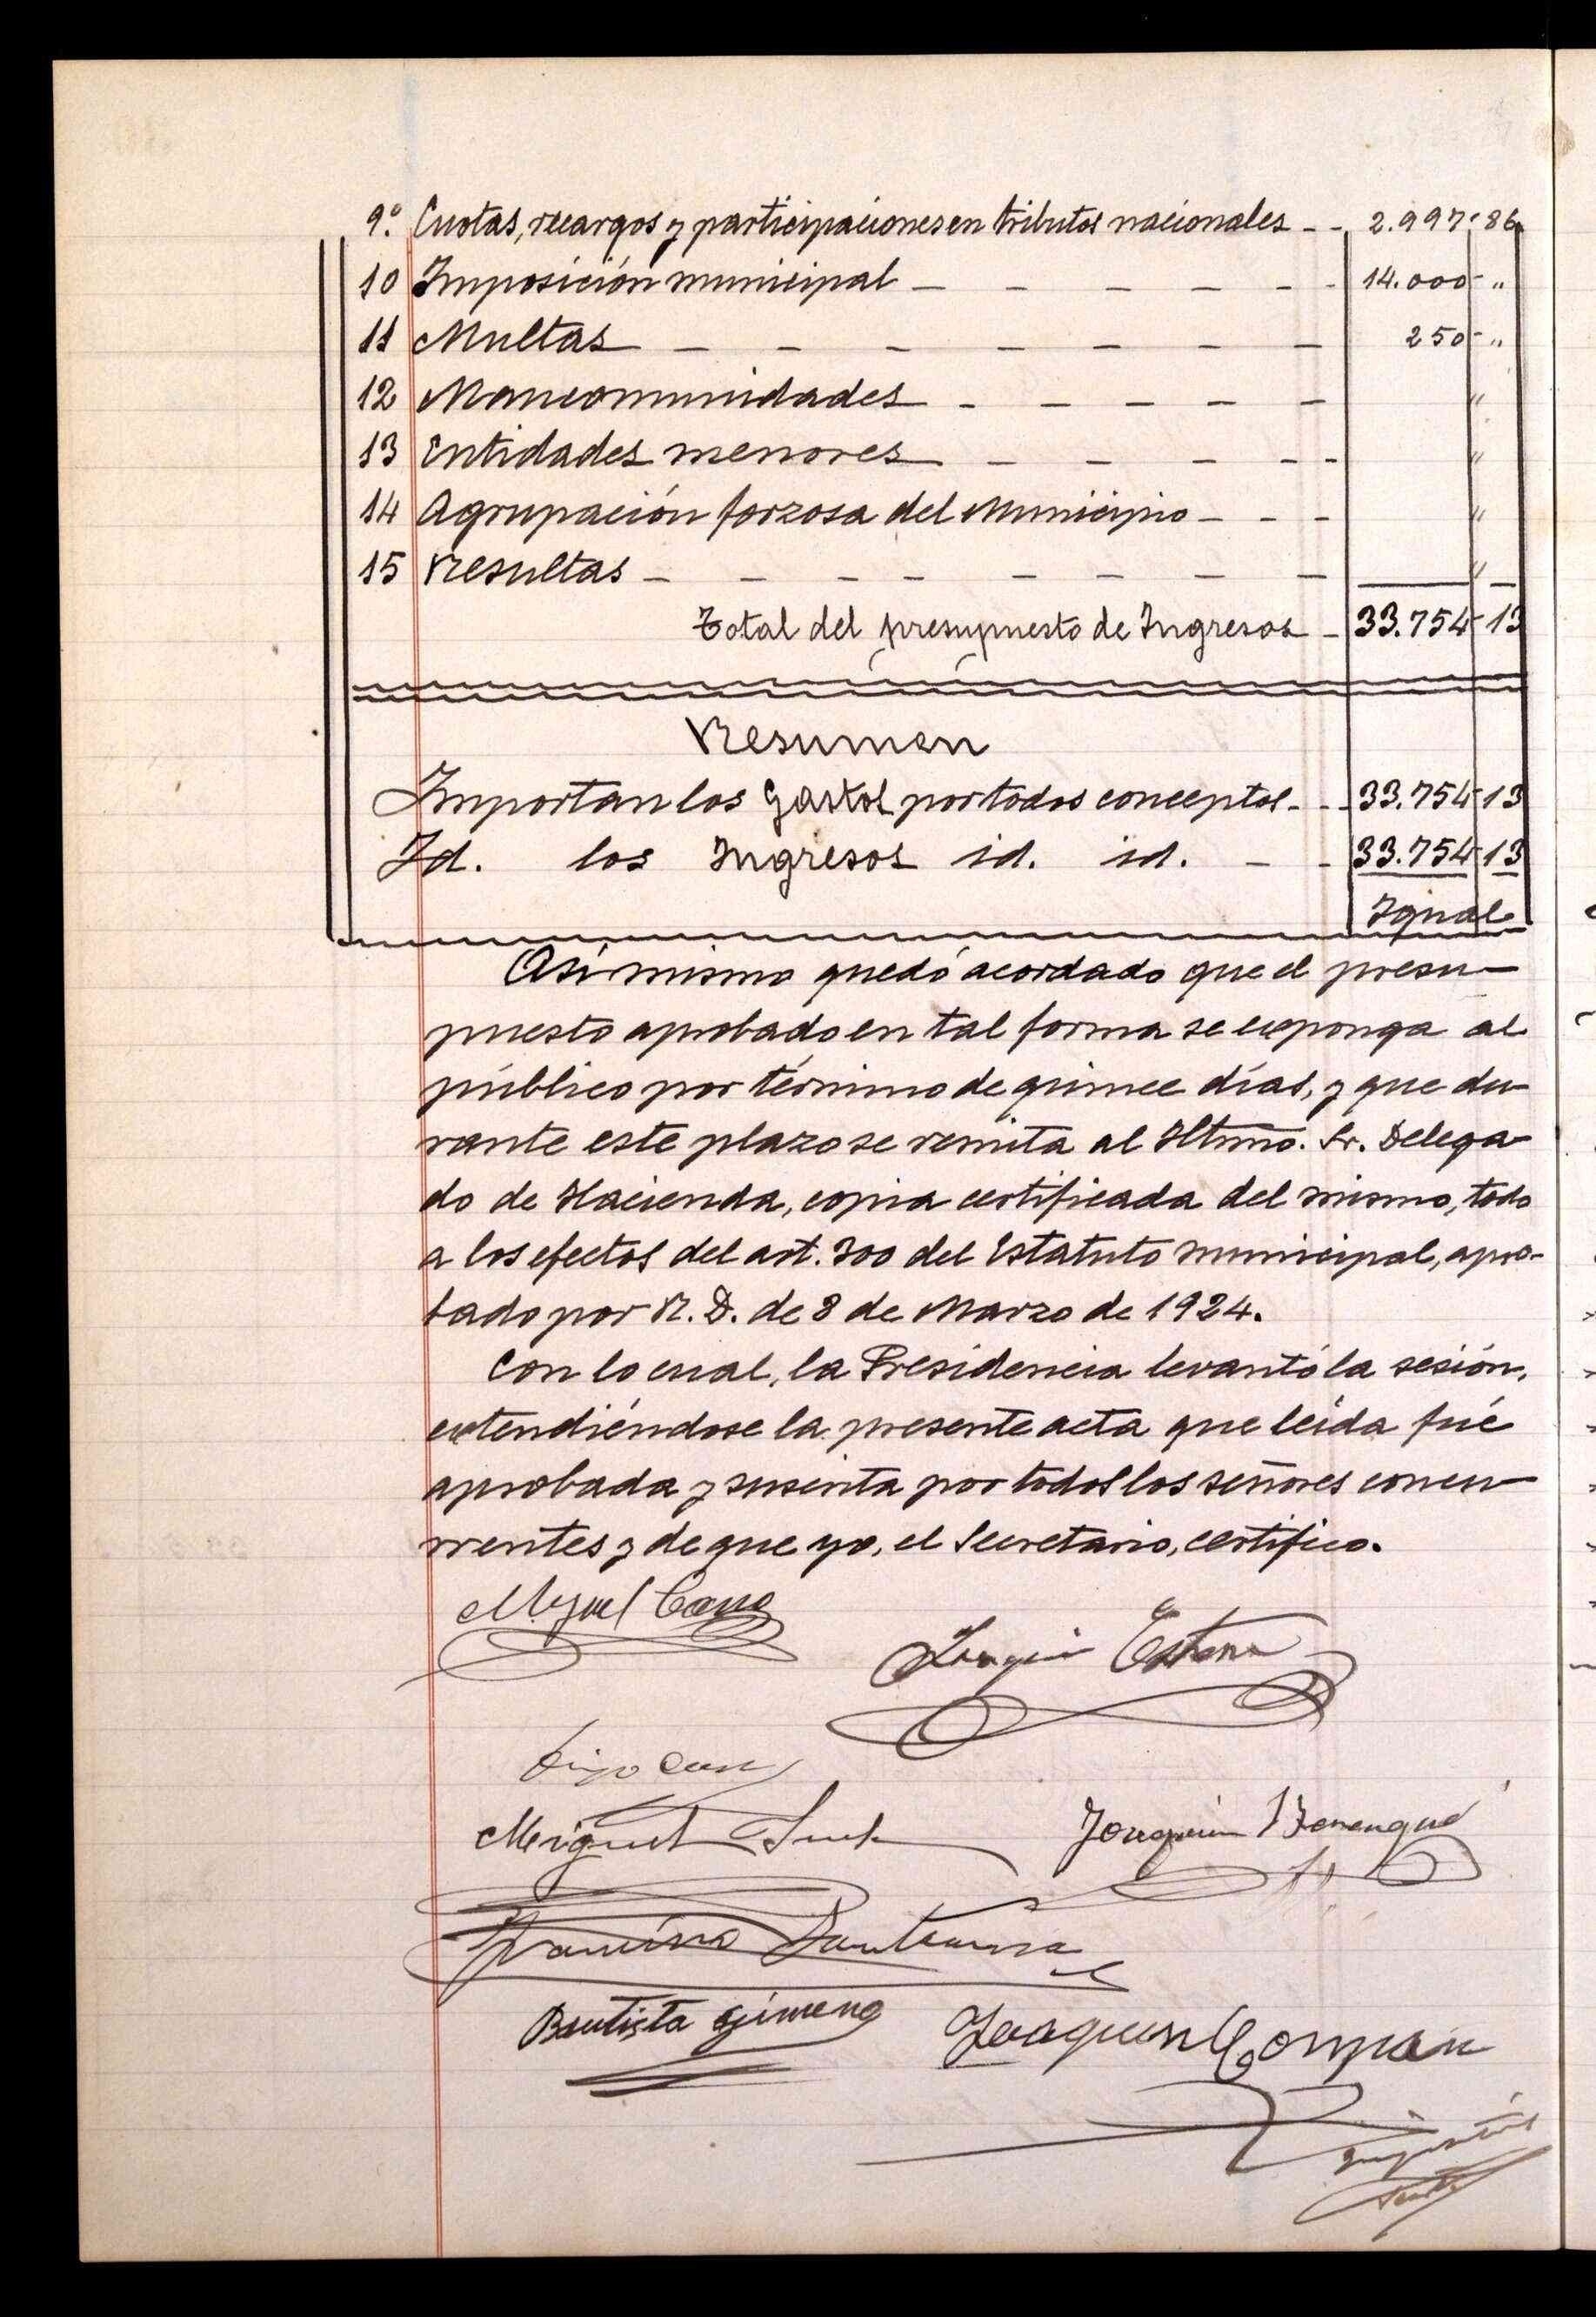 9.º Cuotas, recargos y participaciones en tributos nacionales - - 2.997'86
10 Imposición municipal - - - - - - 14.000 - "
11 Multas - - - - - - - 250 - "
12 Mancomunidades - - - - - "
13 Entidades menores - - - - - "
14 Agrupación forzosa del Municipio - - - "
15 Resultas - - - - - - - - "
Total del presupuesto de Ingresos - 33.754-13
Resumen
Importan los Gastos por todos conceptos - - 33.754-13
Id. los Ingresos id. id. - - 33.754-13
Igual
Asi mismo quedó acordado que el presu-
puesto aprobado en tal forma se exponga al
público por término de quince días, y que du-
rante este plazo se remita al Iltmo. Sr. Delega-
do de Hacienda, copia certificada del mismo, todo
a los efectos del art. 300 del Estatuto municipal, apro-
bado por R. D. de 8 de Marzo de 1924.
Con lo cual, la Presidencia levantó la sesión,
extendiéndose la presente acta que leída fué
aprobada y suscrita por todos los señores concu-
rrentes y de que yo, el Secretario, certifico.
Miguel
Joaquin
Miguel
Joaquin Berengué
Bautista Gimeno
Joaquin Compan